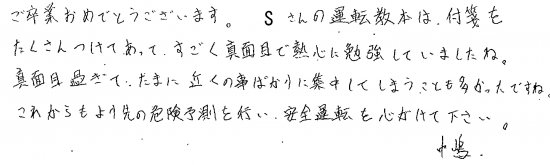 ご卒業おめでとうございます。 Sさんの運転教本は、付箋を
たくさんつけてあって、すごく真面目で熱心に勉強していましたね。
真面目過ぎて、たまに近くの事ばかりに集中してしまうことも多かったですね。
これからもより先の危険予測を行い、安全運転を心がけて下さい。
中嶋